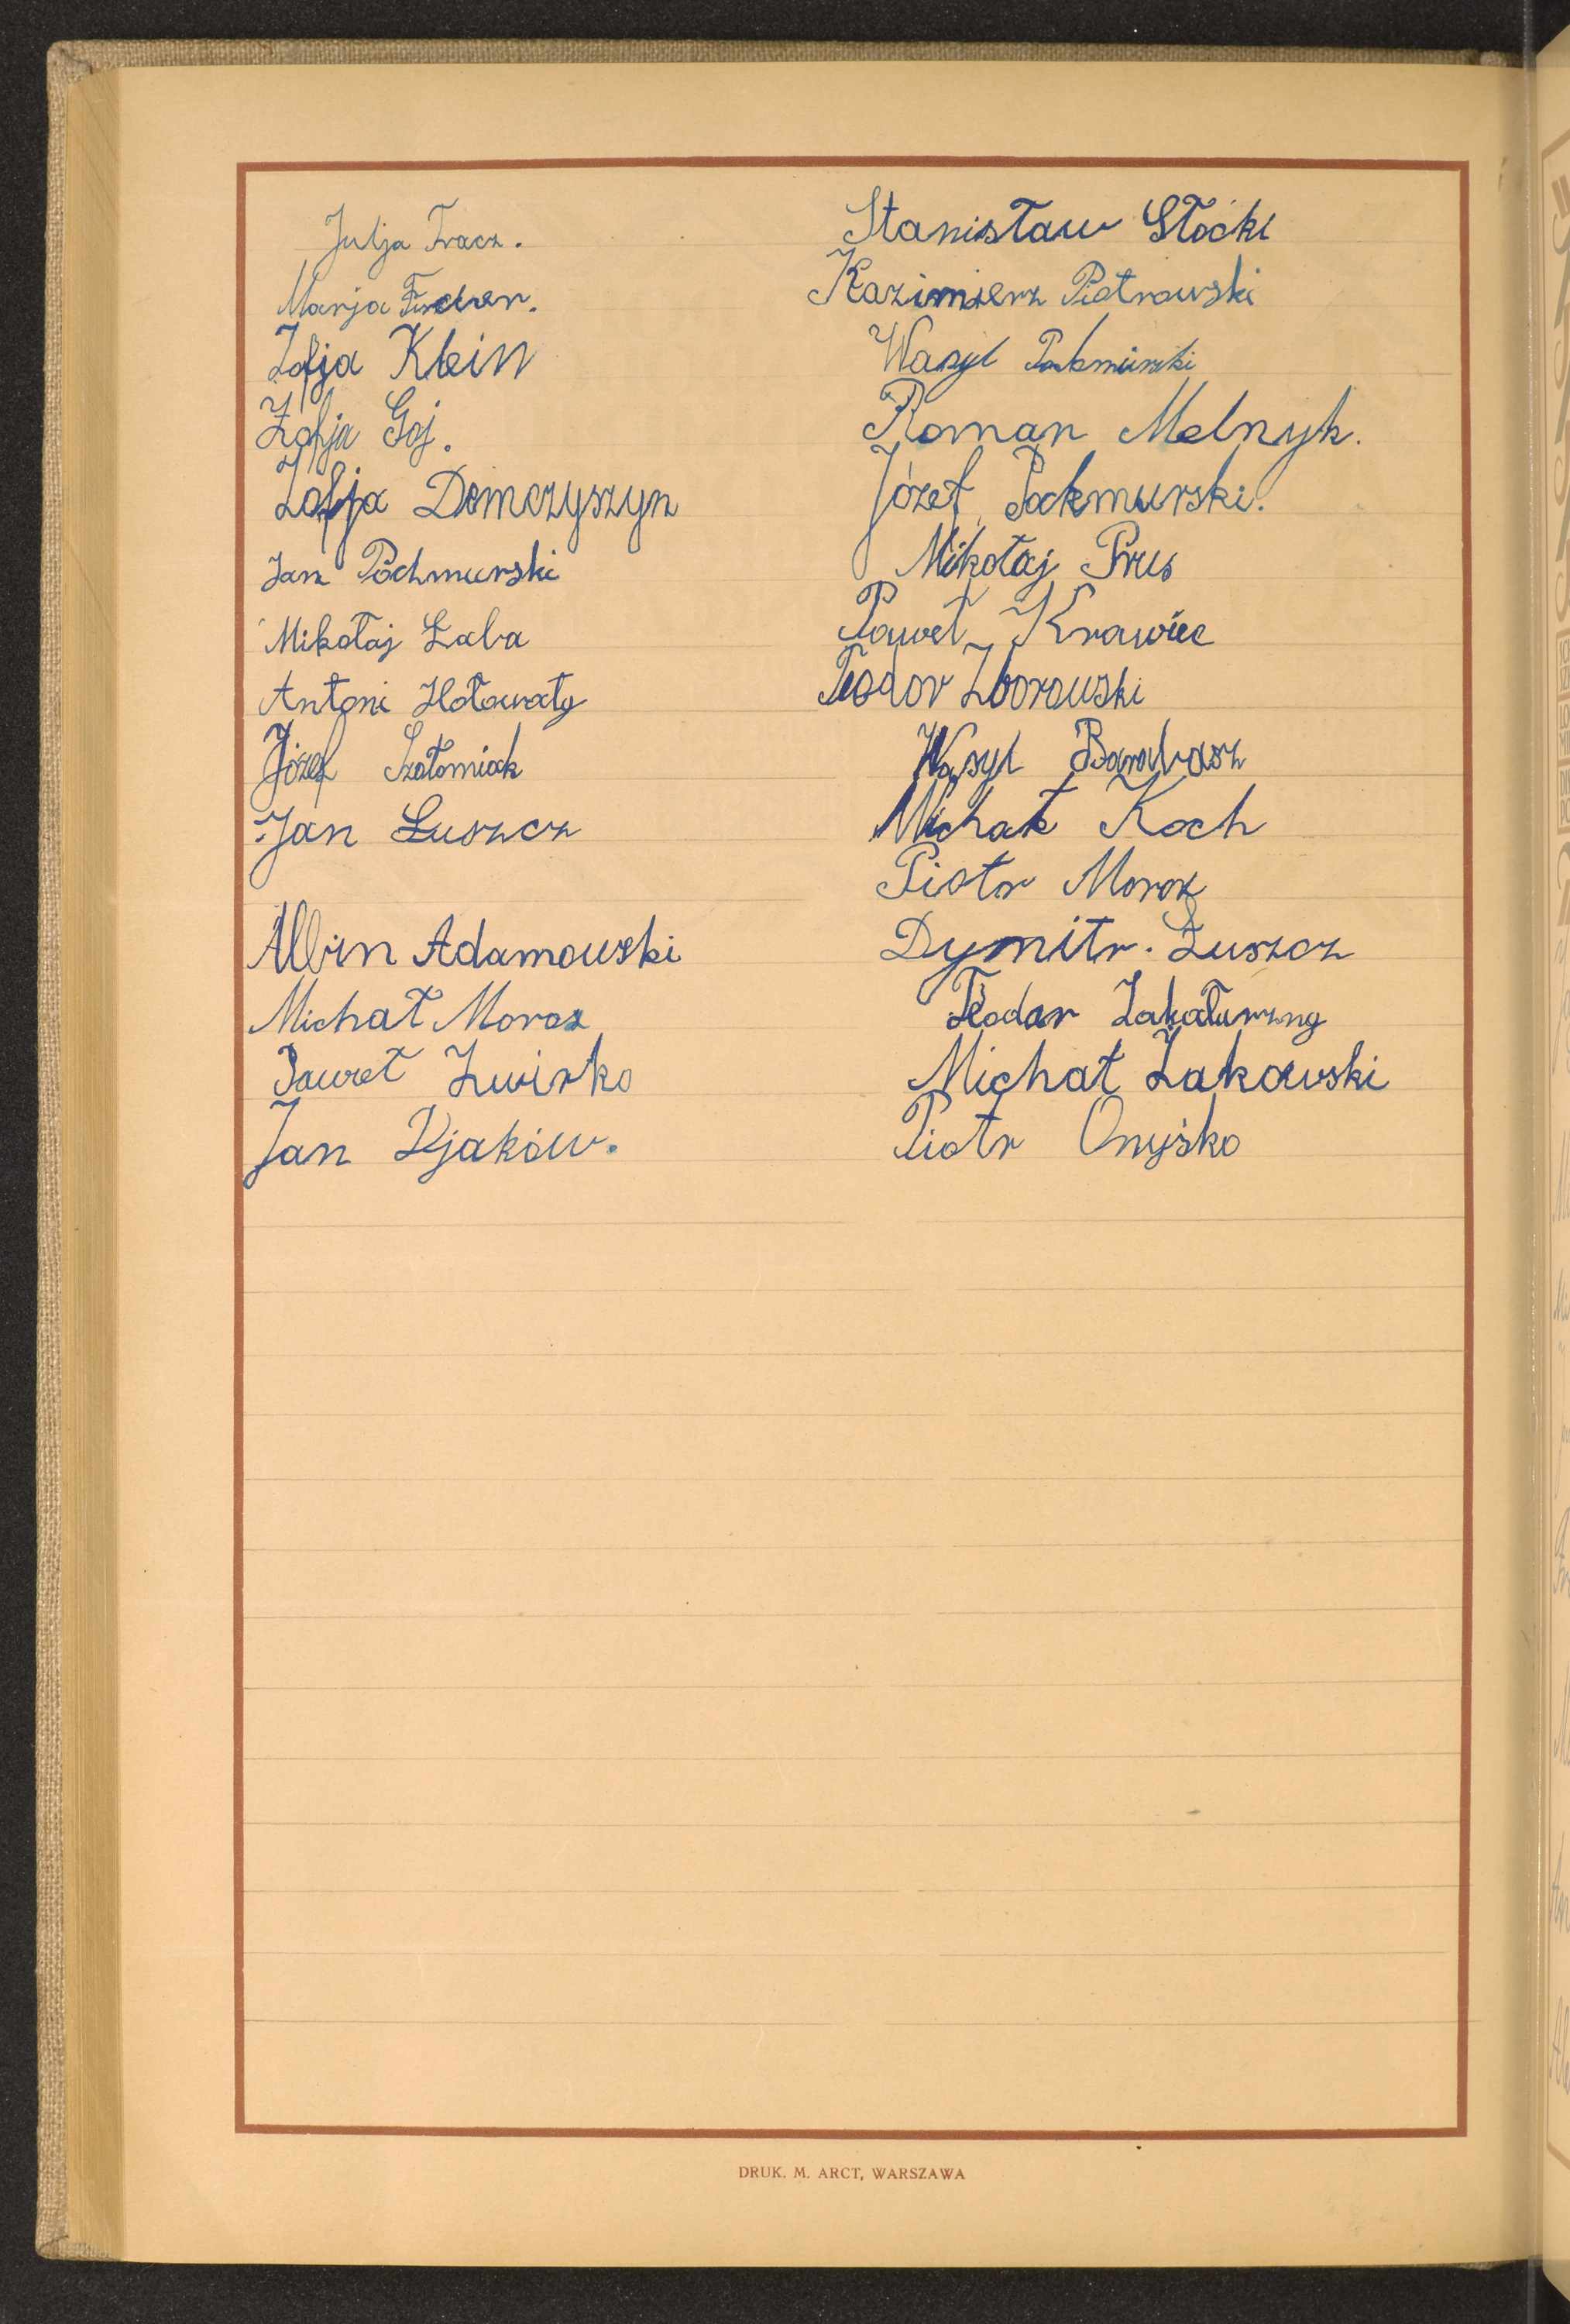 Julja Tracz.
Marja
Zofja Klein
Zofja Goj.
Zofja Demczyszyn
Jan Pochmurski
Mikołaj Łaba
Antoni Hołowaty
Józef Szałomiak
Jan Łuszcz
Albin Adamowski
Michał Moroz
Paweł Zwirko
Jan Djaków.
Stanisław Słocki
Kazimierz Piotrowski
Wasyl
Roman Melnyk.
Józef Pochmurski.
Mikołaj Prus
Paweł Krawiec
Teodor Zborowski
Wasyl Barabasz
Michał Koch
Piotr Moroz
Dymitr. Łuszcz
Teodor
Michał Żakowski
Piotr Onyśko
DRUK. M. ARCT, WARSZAWA